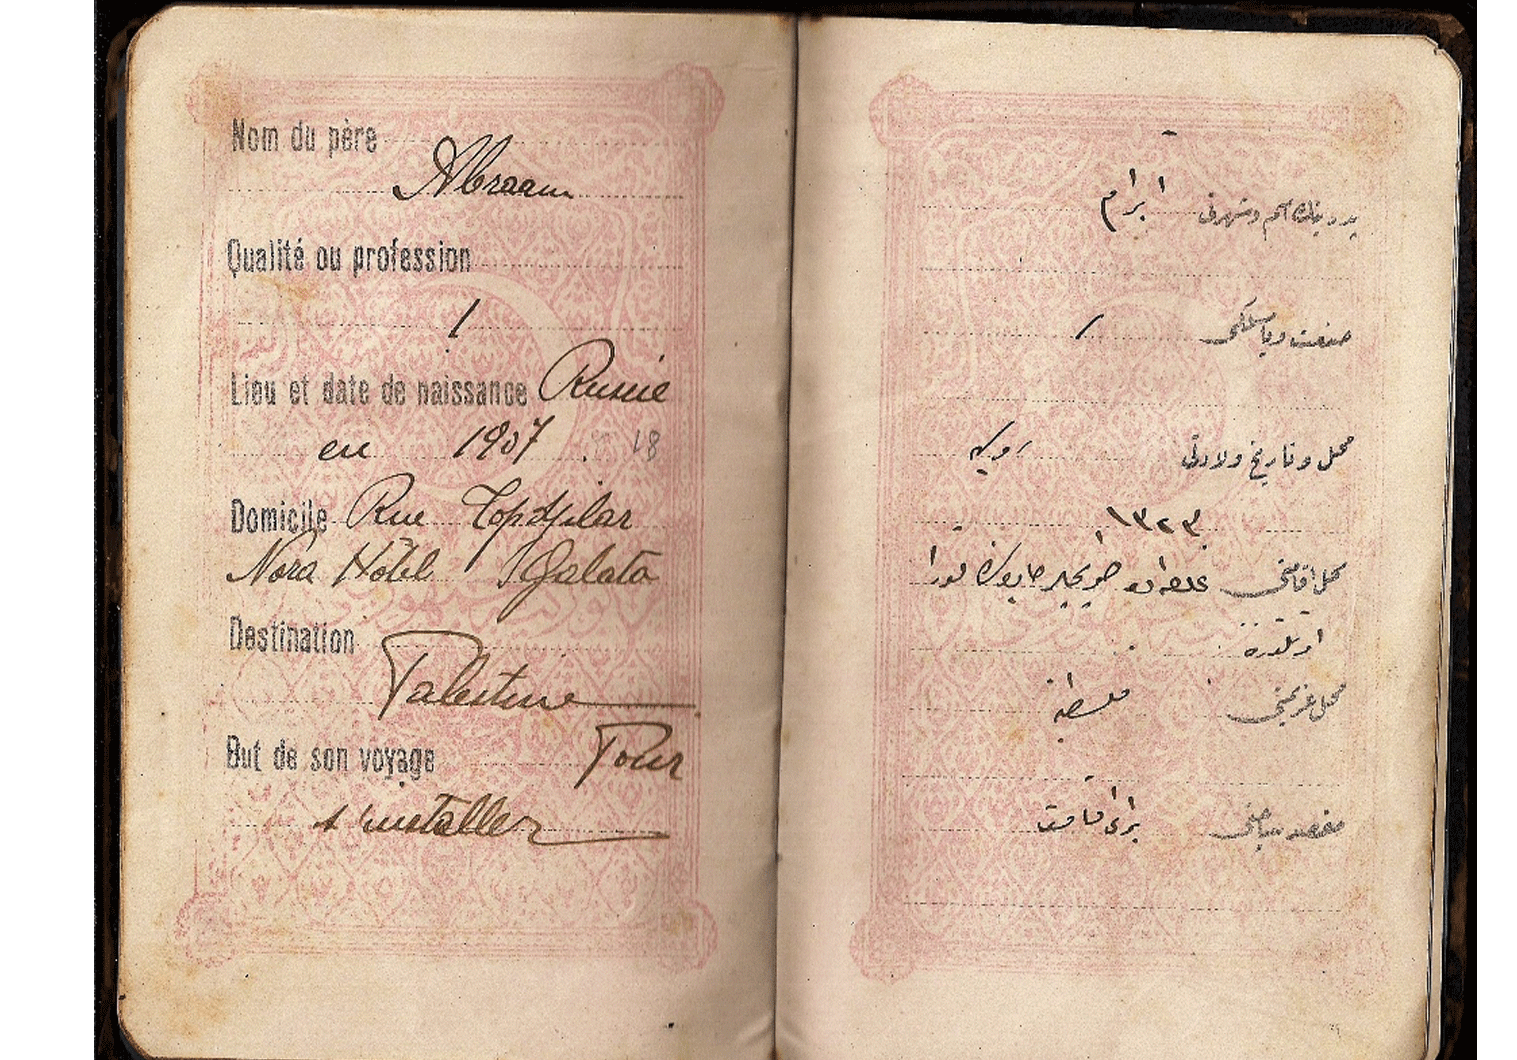 Nom du père
Abraam
Qualité ou profession
/
Lieu et date de naissance Russie
en 1907 18
Domicile Rue Topdjilar
Nora Hôtel Galata
Destination
Palestine
But de son voyage Pour
s'installer
پدرینك اسم و شهرتی ابرام
صنعت ویا سلكی /
محل و تاریخ ولادتی روسیه
١٣٢٣
محل اقامتی غلطه ده طوپجیلر نورا
اوتلنده
محل عزیمتی فلسطین
مقصد سیاحتی برای اقامت